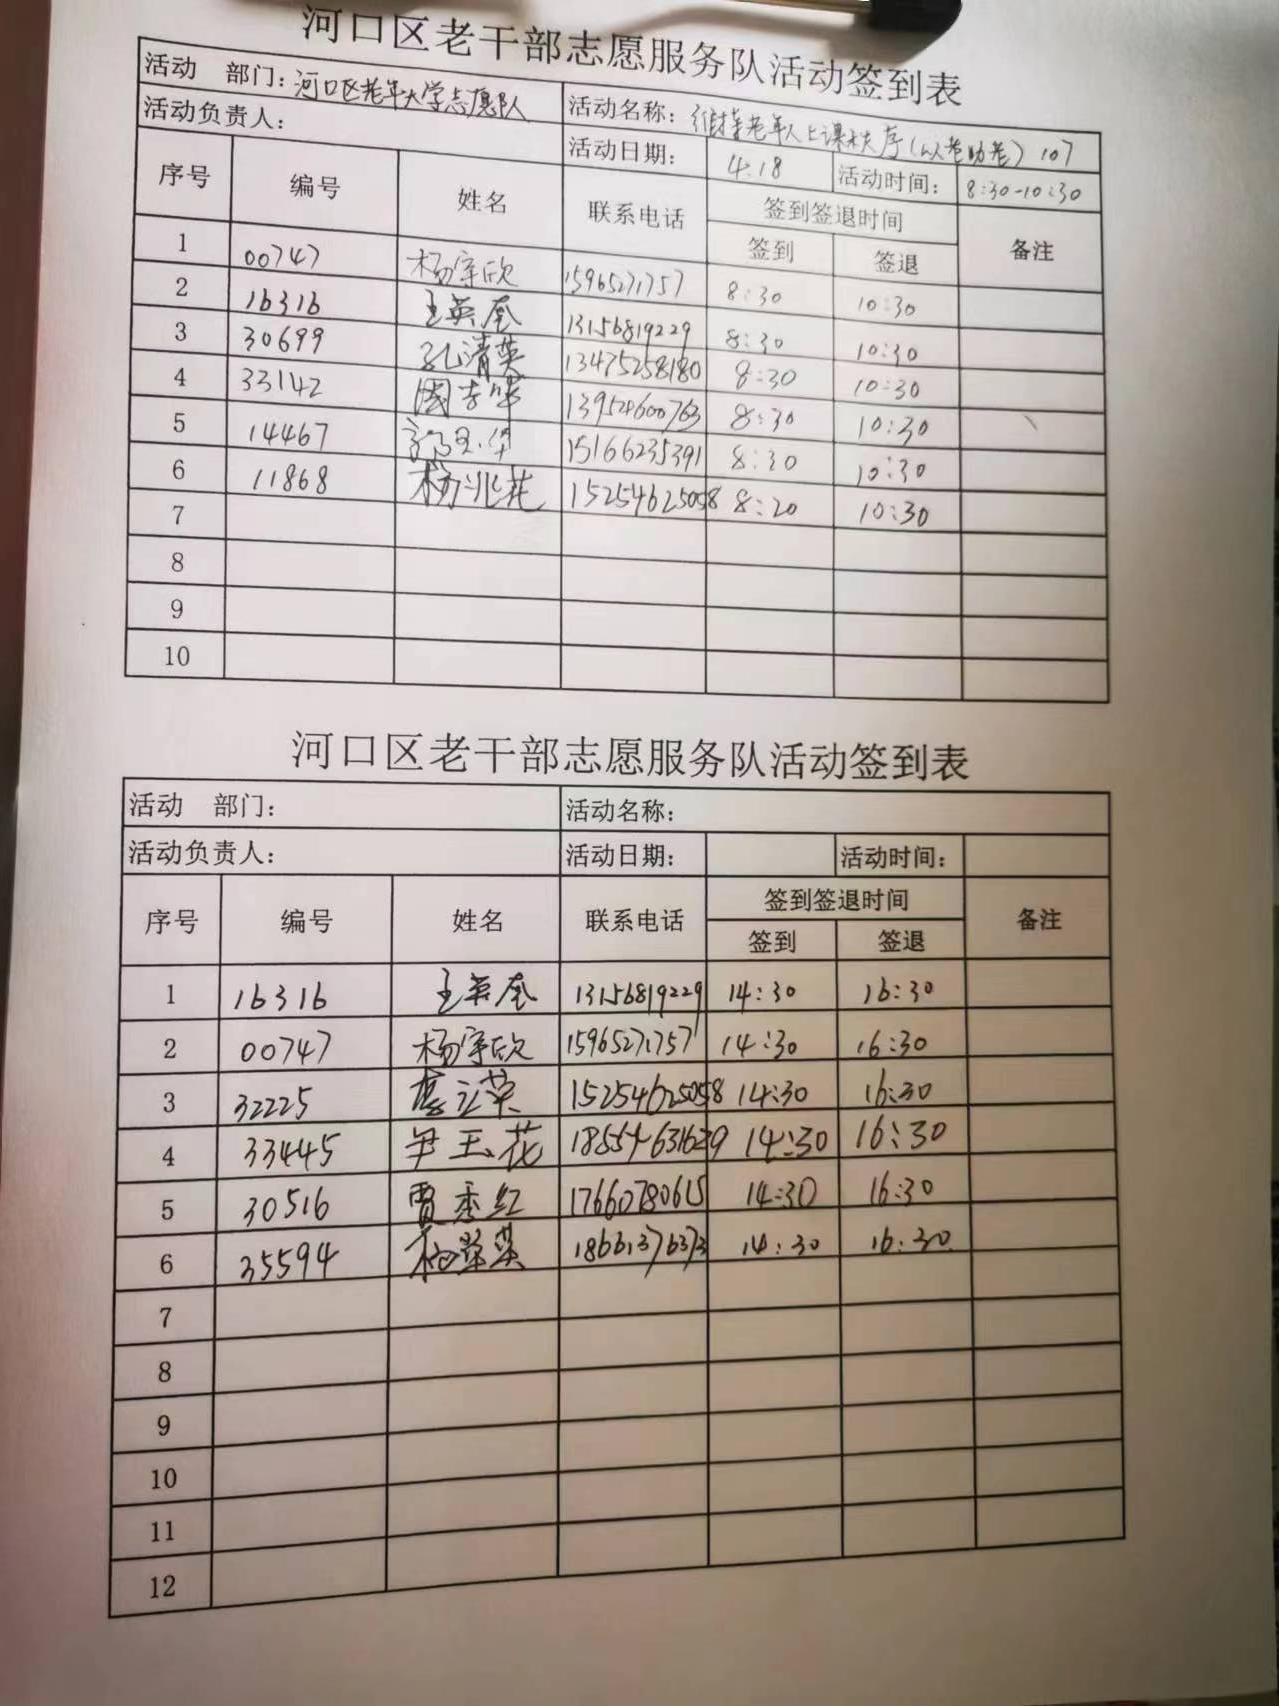 河口区老干部志愿服务队活动签到表
活动 部门：河口区老年大学志愿队 活动名称：维持老年人上课秩序（以老助老）107
活动负责人： 活动日期： 4.18 活动时间： 8:30-10:30
序号 编号 姓名 联系电话 签到签退时间 备注
签到 签退
1 00747 杨宇欣 15965271757 8:30 10:30
2 16316 王英奎 13156819229 8:30 10:30
3 30699 孔清英 13475258180 8:30 10:30
4 33142 国吉华 13954600763 8:30 10:30
5 14467 15166235391 8:30 10:30
6 11868 杨兆花 15254625058 8:20 10:30
7
8
9
10
河口区老干部志愿服务队活动签到表
活动 部门： 活动名称：
活动负责人： 活动日期： 活动时间：
序号 编号 姓名 联系电话 签到签退时间 备注
签到 签退
1 16316 王英奎 13156819229 14:30 16:30
2 00747 杨宇欣 15965271757 14:30 16:30
3 32225 李立英 15254625058 14:30 16:30
4 33445 尹玉花 18554631639 14:30 16:30
5 30516 贾秀红 17660780615 14:30 16:30
6 35594 杨翠英 18661376373 14:30 16:30
7
8
9
10
11
12